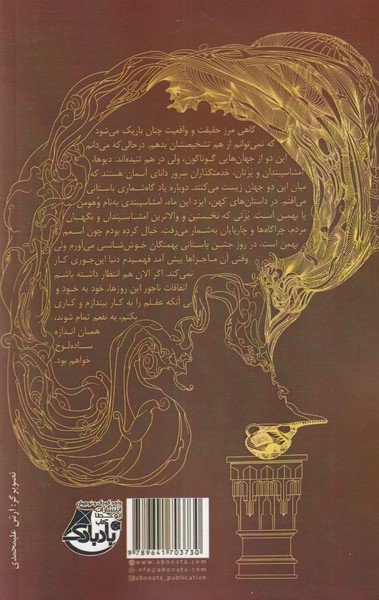 گاهی مرز حقیقت و واقعیت چنان باریک می‌شود
که نمی‌توانم از هم تشخیصشان بدهم. درحالی‌که می‌دانم
این دو از جهان‌هایی گوناگون، ولی در هم تنیده‌اند. دیوها،
امشاسپندان و یزتان، خدمتگذاران سرور دانای آسمان هستند که
میان این دو جهان زیست می‌کنند. دوباره یاد گاه‌شماری باستانی
می‌افتم. در داستان‌های کهن، ایزد این ماه، امشاسپندی به‌نام وهومن
یا بهمن است. یزتی که نخستین و والاترین امشاسپندان و نگهبان
مردم، چراگاه‌ها و چارپایان به‌شمار می‌رفت. خیال کرده بودم چون اسمم
بهمن است، در روز جشن باستانی بهمنگان خوش‌شانسی می‌آورم ولی
وقتی آن ماجراها پیش آمد فهمیدم دنیا این‌جوری کار
نمی‌کند. اگر الان هم انتظار داشته باشم
اتفاقات ناجور این روزها، خود به خود و
بی آنکه عقلم را به کار بیندازم و کاری
بکنم، به نفعم تمام شوند،
همان اندازه
ساده‌لوح
خواهم بود.
تصویرگر: آرش علیمحمدی
بادبادک
9 789641 703730
www.abooata.com
info@abooata.com
abooata_publication